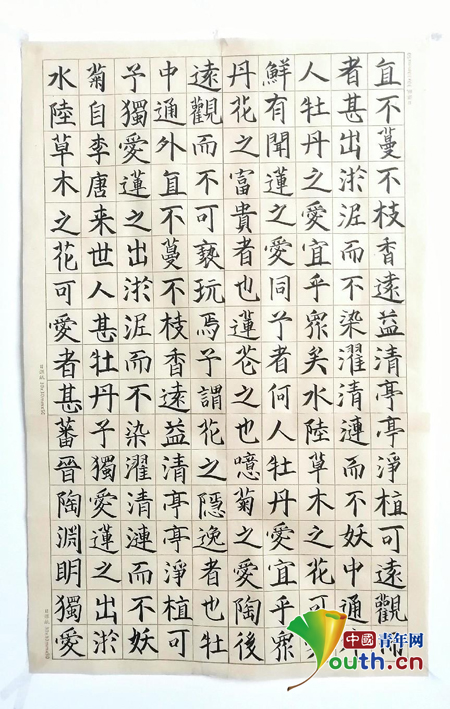 水陸草木之花可愛者甚蕃晉陶淵明獨愛
菊自李唐来世人甚牡丹予獨愛蓮之出淤
予獨愛蓮之出淤泥而不染濯清漣而不妖
中通外直不蔓不枝香遠益清亭亭淨植可
遠觀而不可褻玩焉予謂花之隱逸者也牡
丹花之富貴者也蓮花之也噫菊之愛陶後
鮮有聞蓮之愛同予者何人牡丹愛宜乎眾
人牡丹之愛宜乎眾矣水陸草木之花可
者甚出淤泥而不染濯清漣而不妖中通
直不蔓不枝香遠益清亭亭淨植可遠觀而
中國青年网
youth.cn